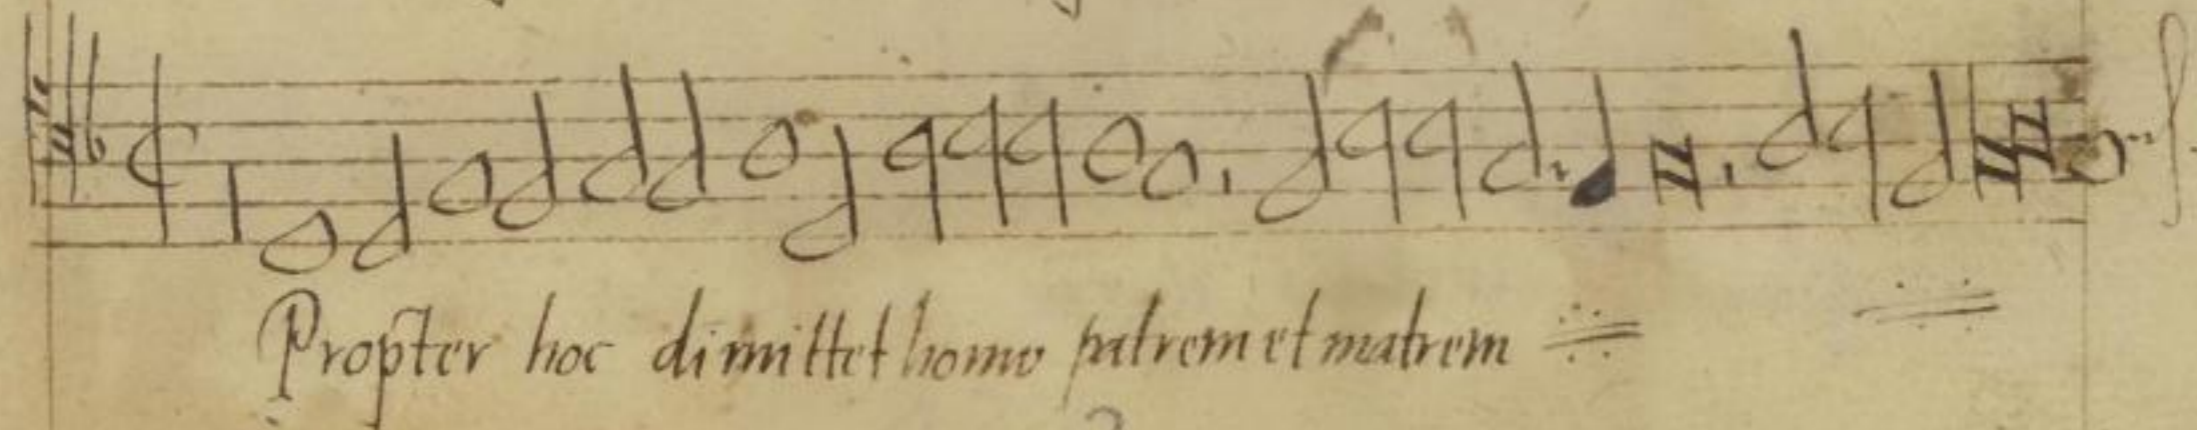 Prop̃ter hoc dimittet homo patrem et matrem